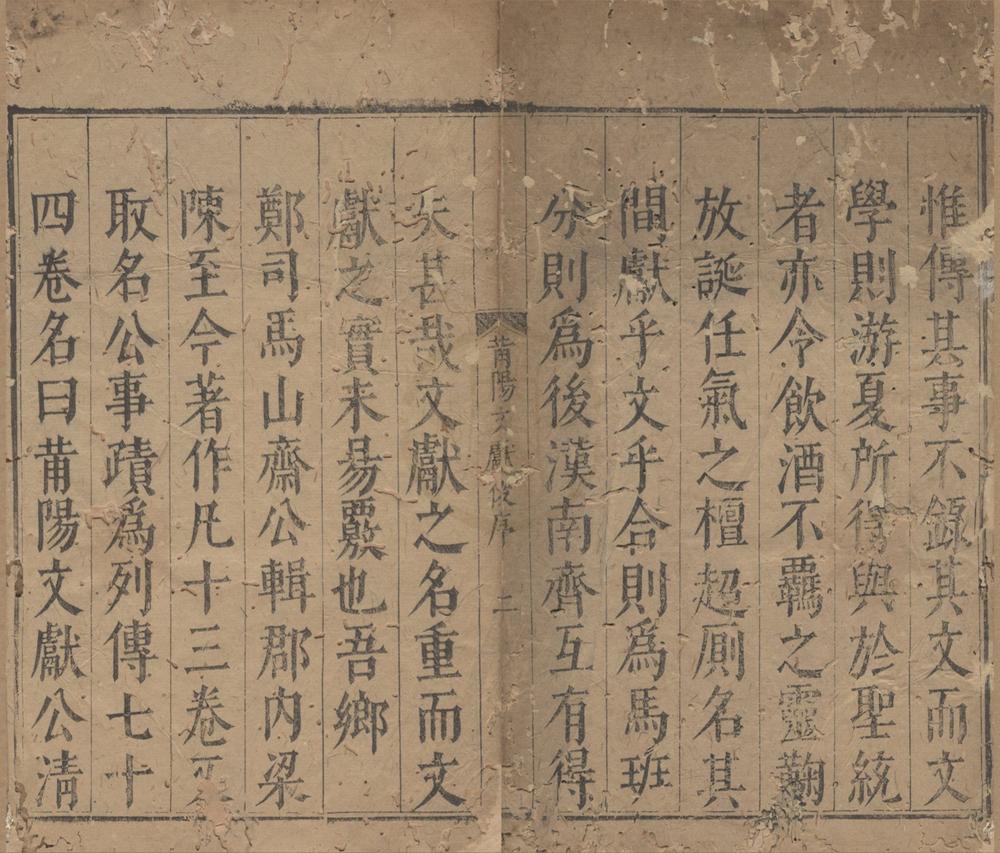 惟傳其事不錄其文而文
學則游夏所得與於聖統
者亦令飲酒不羈之靈鞠
放誕任氣之檀超厠名其
間獻乎文乎合則爲馬班
分則爲後漢南齊互有得
莆陽文獻後序 二
矢甚哉文獻之名重而文
獻之實未昜覈也吾鄉
鄭司馬山齋公輯郡内梁
陳至今著作凡十三卷
取名公事蹟爲列傳七十
四卷名曰莆陽文獻公清